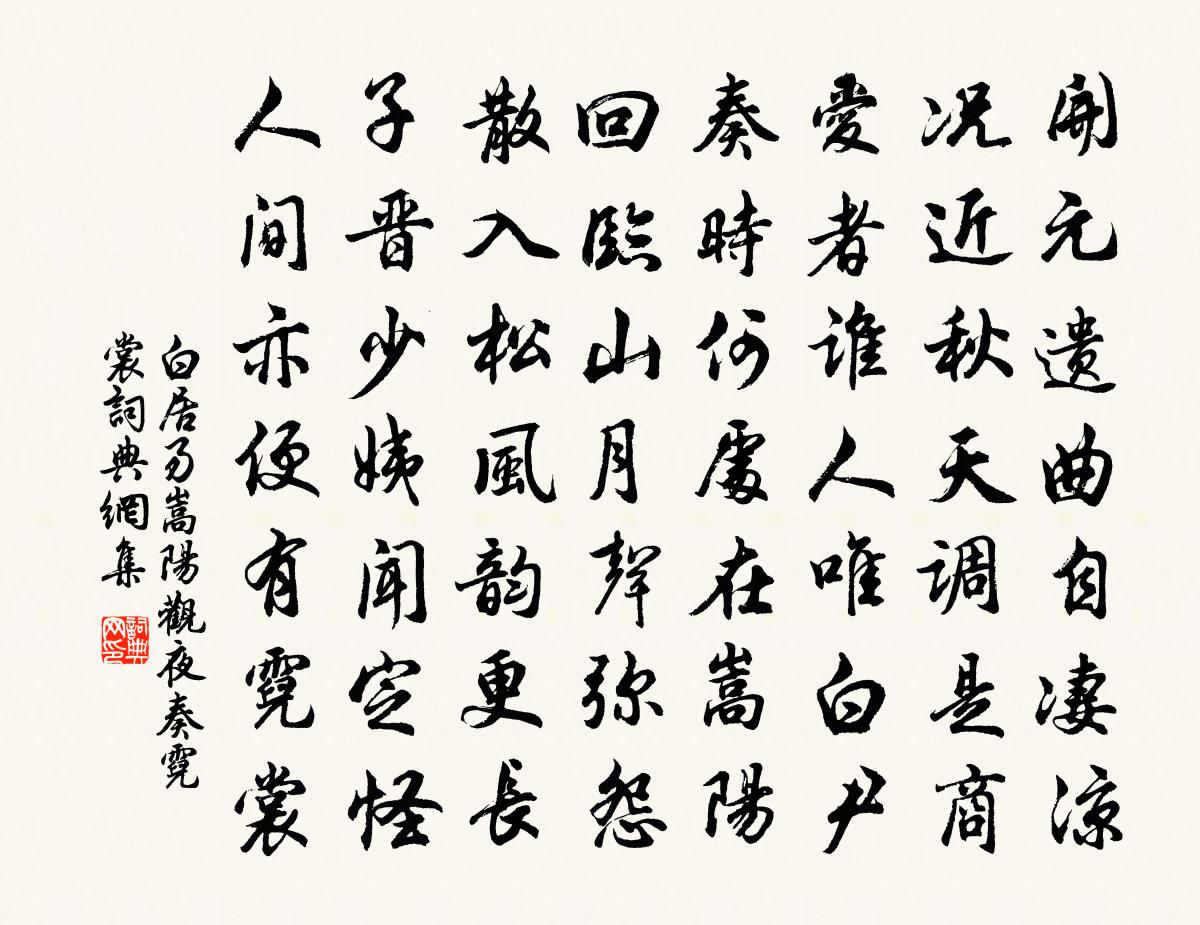 開元遺曲自凄凉
况近秋天調是商
愛者誰人唯白尹
奏時何處在嵩陽
回臨山月聲弥怨
散入松風韵更長
子晋少姨聞定怪
人间亦便有霓裳
白居易嵩陽觀夜奏霓
裳詞典網集
詞典
网印